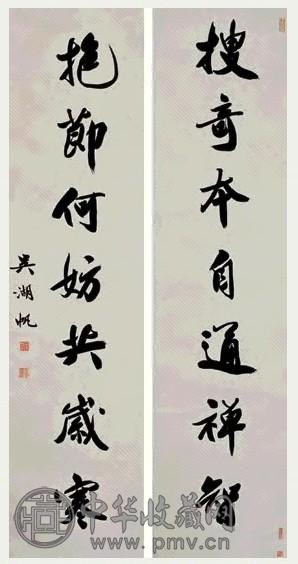 搜奇本自通禅智
抱節何妨共歲寒
吴湖帆
中华收藏网
www.pmv.cn